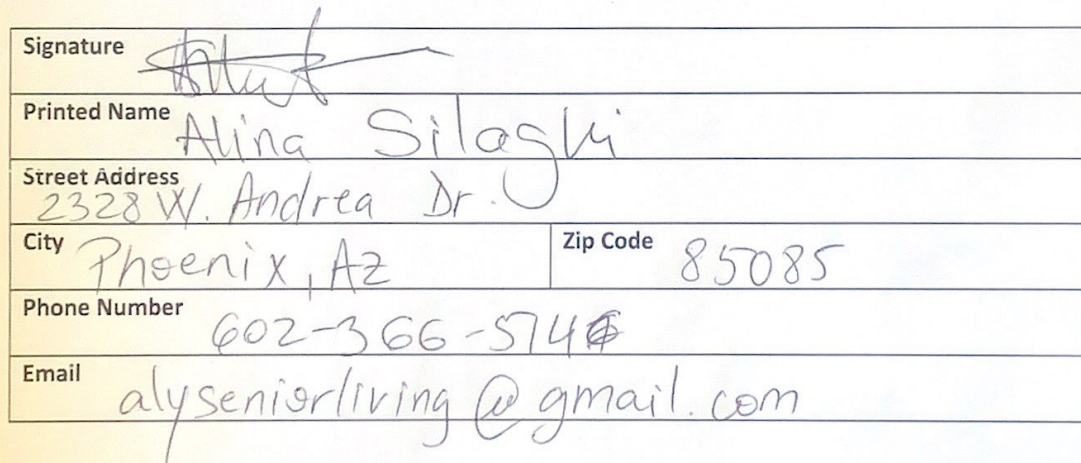 Signature
Printed Name Alina Silaghi
Street Address
2328 W. Andrea Dr.
City Phoenix, Az Zip Code 85085
Phone Number
602-366-574
Email
alyseniorliving@gmail.com